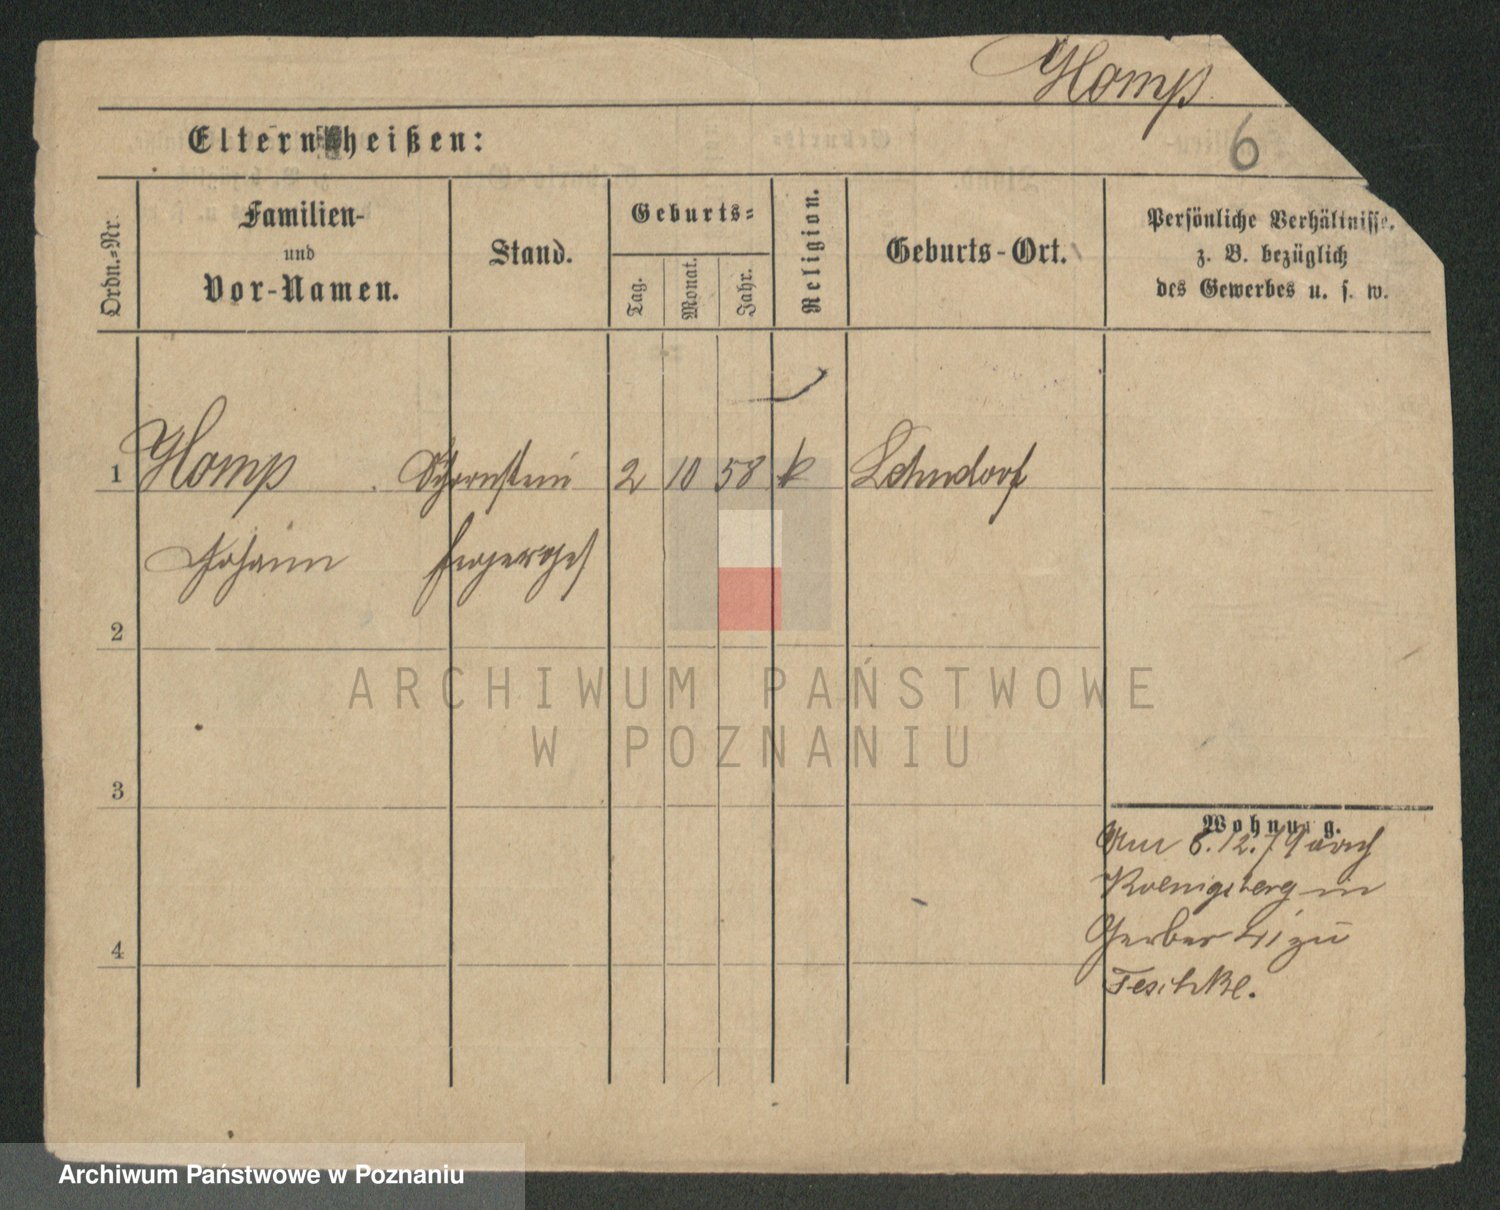 Homp
6
Eltern heißen:
Ordn.-Nr.
Familien-
und
Vor-Namen.
Stand.
Geburts-
Tag.
Monat.
Jahr.
Religion.
Geburts-Ort.
Persönliche Verhältnisse.
z. B. bezüglich
des Gewerbes u. s. w.
1 Homp Schornstein 2 10 58 k
Johann
2
3
4
Wohnung.
Am 8.12.79 nach
Koenigsberg in
Gerber zu
Teschke.
ARCHIWUM PAŃSTWOWE
W POZNANIU
Archiwum Państwowe w Poznaniu